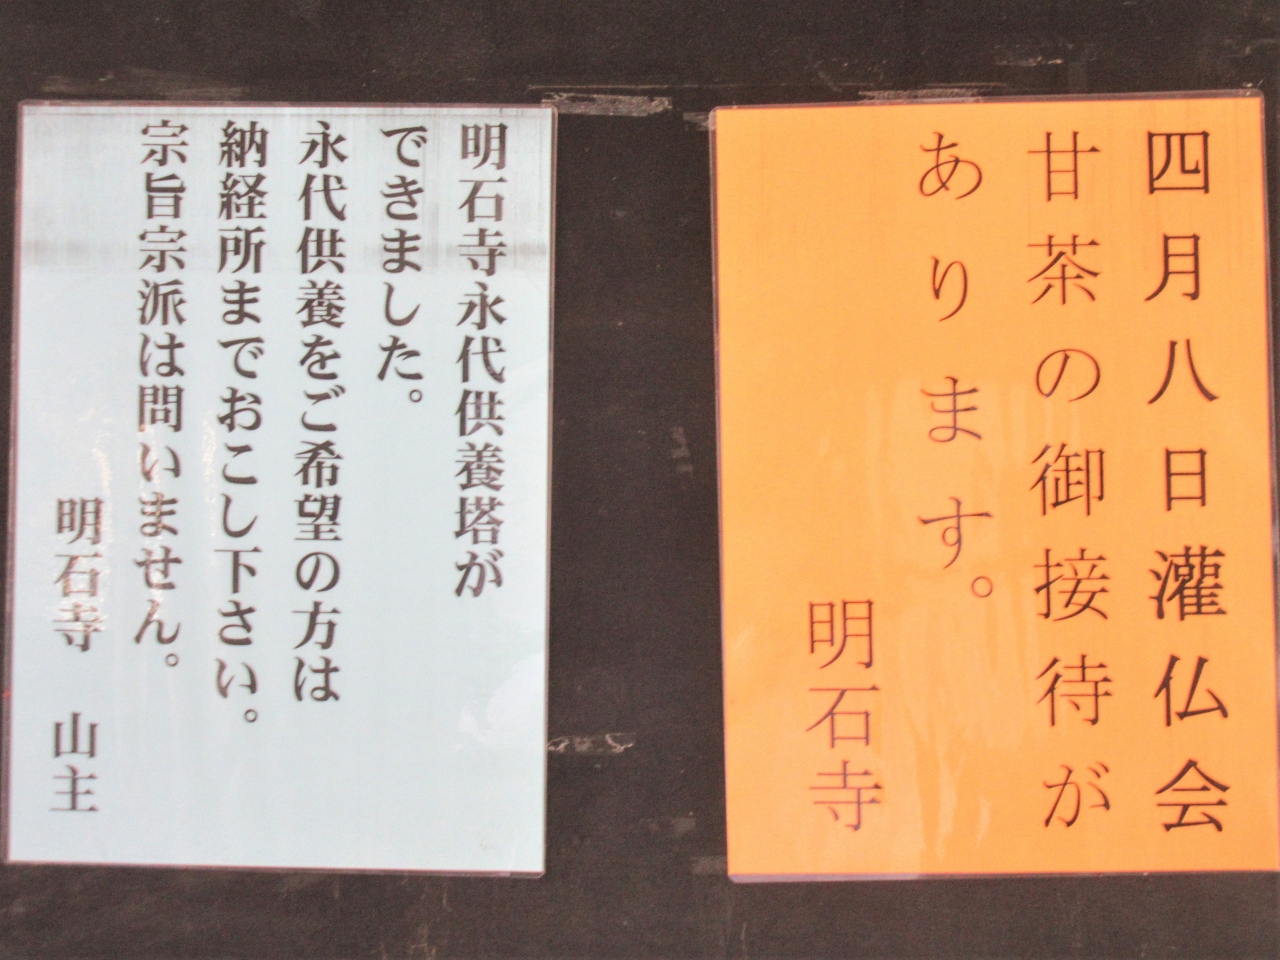 四月八日灌仏会
甘茶の御接待が
あります。
明石寺
明石寺永代供養塔が
できました。
永代供養をご希望の方は
納経所までおこし下さい。
宗旨宗派は問いません。
明石寺　山主